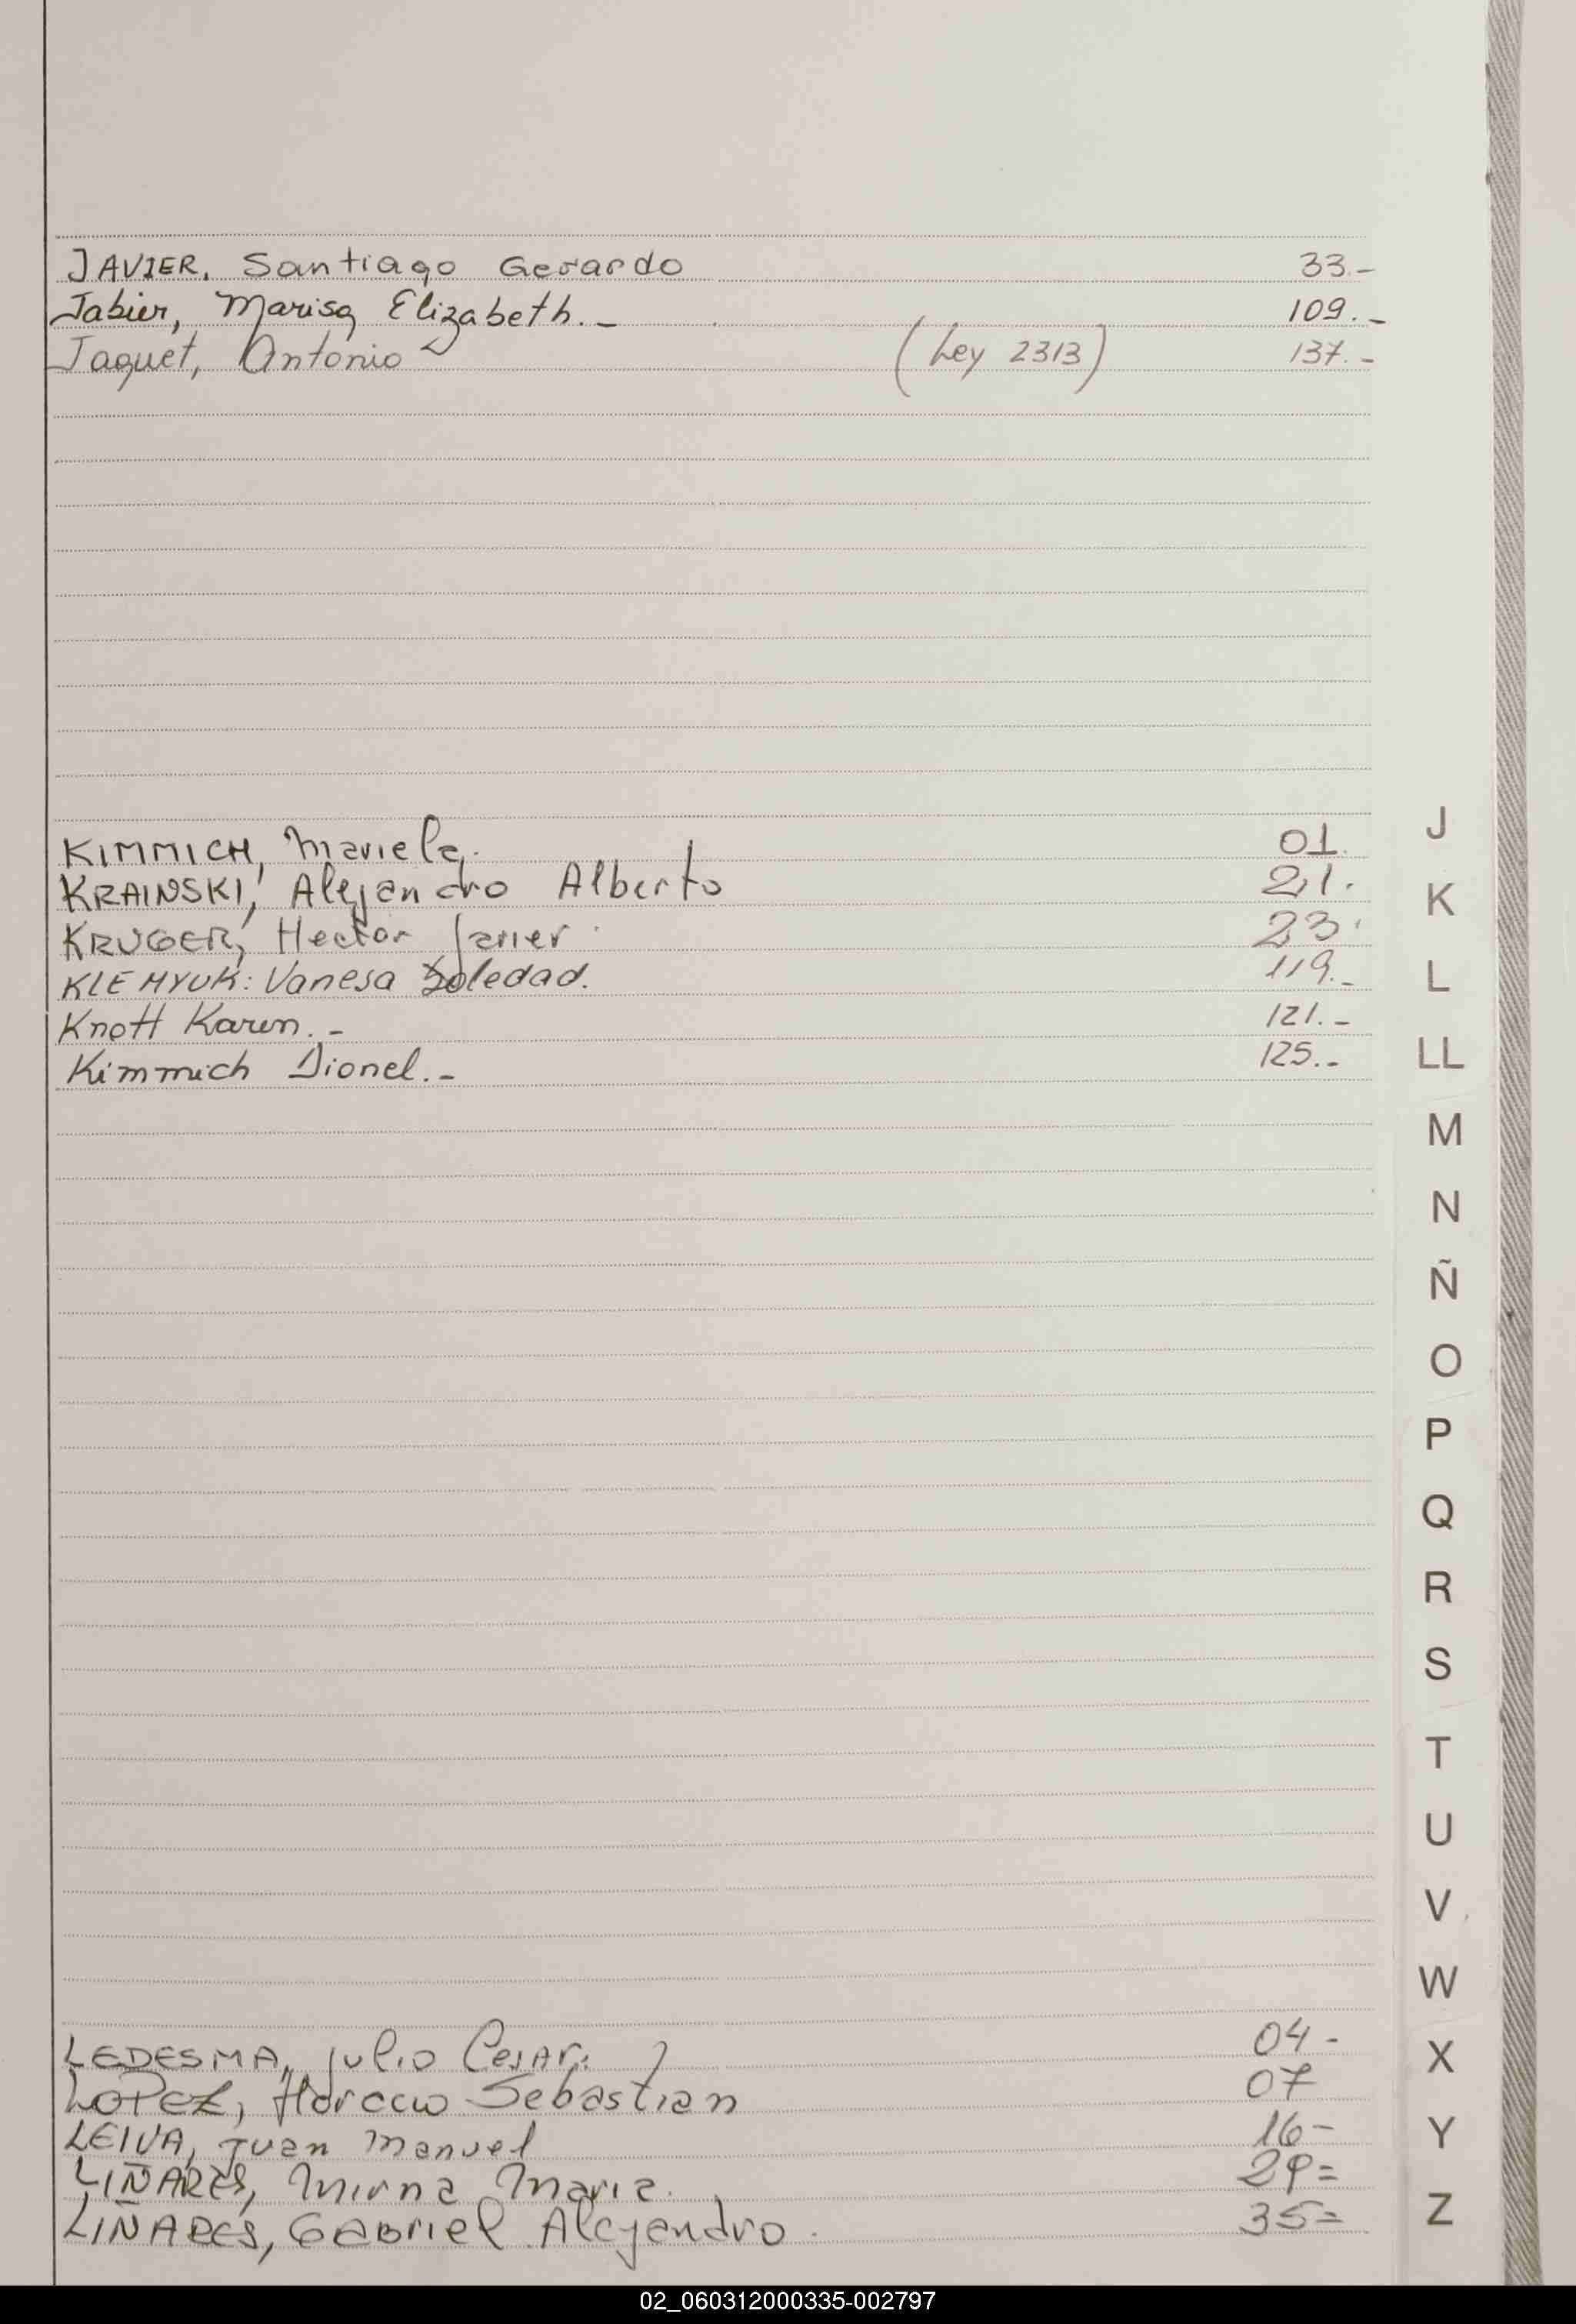 JAVIER, Santiago Gerardo 33.-
Jabier, Marisa Elizabeth.- 109.-
Jaquet, Antonio (Ley 2313) 137.-
KIMMICH, Mariela. 01.
KRAINSKI, Alejandro Alberto 21.
KRUGER, Hector Javier 23.
KLEMYUK: Vanesa Soledad. 119.-
Knott Karen.- 121.-
Kimmich Dionel.- 125.-
LEDESMA, Julio Cesar. 04-
LOPEZ, Horacio Sebastian 07
LEIVA, Juan Manuel 16-
LIÑARES, Mirna Maria. 29=
LIÑARES, GABRIEL Alejandro. 35=
J
K
L
LL
M
N
Ñ
O
P
Q
R
S
T
U
V
W
X
Y
Z
02_060312000335-002797